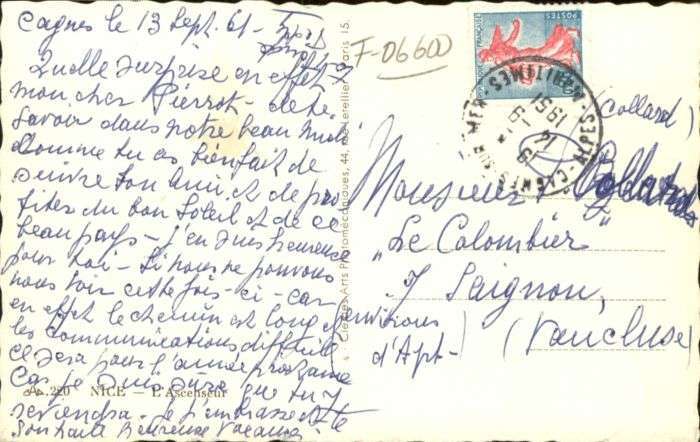 Cagnes le 13 Sept. 61 -
Quelle surprise en effet
mon cher Pierrot - de te
savoir dans notre beau midi
Comme tu as bien fait de
suivre ton ami et de pro
fiter du bon soleil et de ce
beau pays - j'en suis heureuse
pour toi - Si nous ne pouvons
nous voir cette fois-ci - car
en effet le chemin est long et
les communications difficiles
ce sera pour l'année prochaine
car je suis sûre que tu y
reviendra - Je t'embrasse et te
souhaite heureuse vacances.
220 NICE — L'Ascenseur
Arts Photomécaniques, 44, rue Letellier - Paris 15
F-06600
POSTES
RÉPUBLIQUE FRANÇAISE
CAGNES-SUR-MER
ALPES-MARITIMES
(Collard)
Monsieur P. Collard
"Le Colombier"
/ Saignon,
(environs d'Apt-)
(Vaucluse)